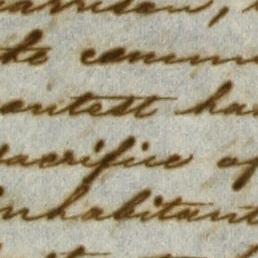 the comm
contest ha
sacrifice of
inhabitant